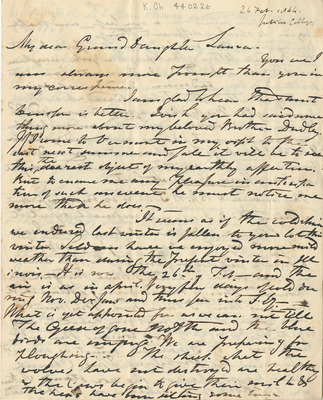 K. Ch 440226
26 Feb. 1844.
Jubilee College
My dear Grand Daughter Laura.
You see I
am always more prompt than you in
my correspondence.
I am glad to hear that aunt
is better. I wish you had said some
thing more about my beloved Brother Dudley
If I come to
next summer and fall it will be to see
this the dearest object of my earthly affection.
But to ensure me any pleasure in anticipa
tion of such an event he must notice me
more than he does.
It seems as if the cold
we endured last winter is fallen to your lot this
winter. have we enjoyed more mild
weather than during the present winter in Ill
inois. It is now the 26th of Feb. and the
air is as in april. Very few days of cold du
ring Nov. Dec. Jan and thus far into Feb.
What is yet appointed for us we can not tell
The Geese are gone North and the blue
birds are singing. We are preparing for
ploughing. The sheep what the
wolves have not destroyed are healthy
& the Cows begin to give their milk &
The hens have been sitting some time